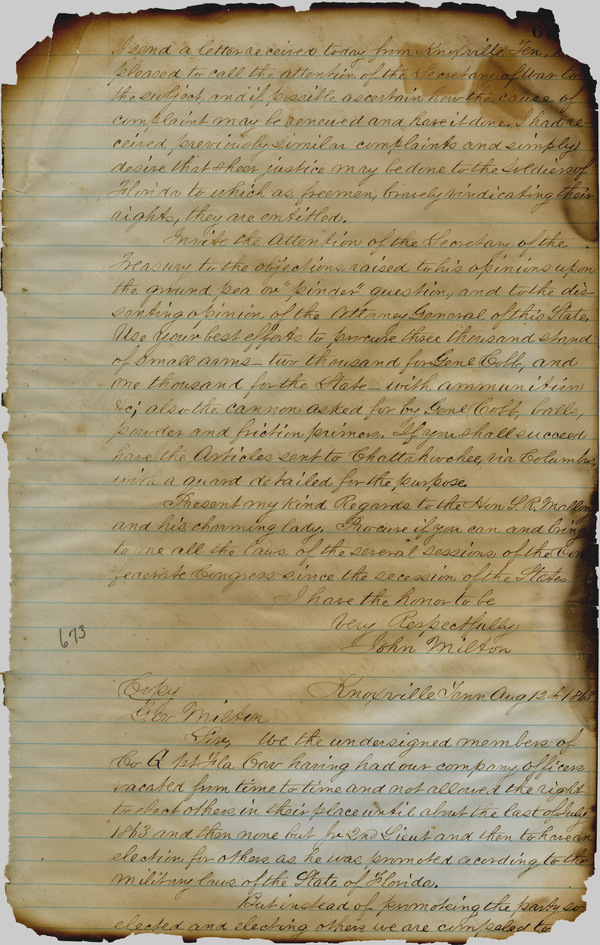 67
I send a letter received today from Knoxville Ten,
pleased to call the attention of the Secretary of War to
the subject, and if possible ascertain how the cause of
complaint may be removed and have it done. I had re-
ceived previously similar complaints and simply
desire that sheer justice may be done to the soldiers of
Florida to which as freemen, bravely vindicating their
rights, they are entitled.
Invite the Attention of the Secretary of the
Treasury to the objections raised to his opinions upon
the ground pea or "pinder" question, and to the dis-
senting opinion of the Attorney General of this State.
Use your best efforts to procure three thousand stand
of small arms - two thousand for Genl Cobb, and
one thousand for the State - with ammunition
&c; also the cannon asked for by Genl Cobb, balls,
powder and friction primers. If you shall succeed
have the Articles sent to Chattahoochee, via Columbus,
with a guard detailed for the purpose.
Present my kind Regards to the Hon S. R. Mallory
and his charming lady. Procure if you can and bring
to me all the laws of the several sessions of the Con
federate Congress since the secession of the States
I have the honor to be
Very Respectfully
John Milton
673
Copy Knoxville Tenn Aug 12th 1863
Gov Milton
Sir, We the undersigned members of
Co A 1st Fla Cav having had our company officers
vacated from time to time and not allowed the right
to elect others in their place until about the last of July
1863 and then none but Jr 2nd Lieut and then to have an
election for others as he was promoted acording to the
military laws of the State of Florida.
But instead of promoteing the party so
elected and electing others we are compeled to